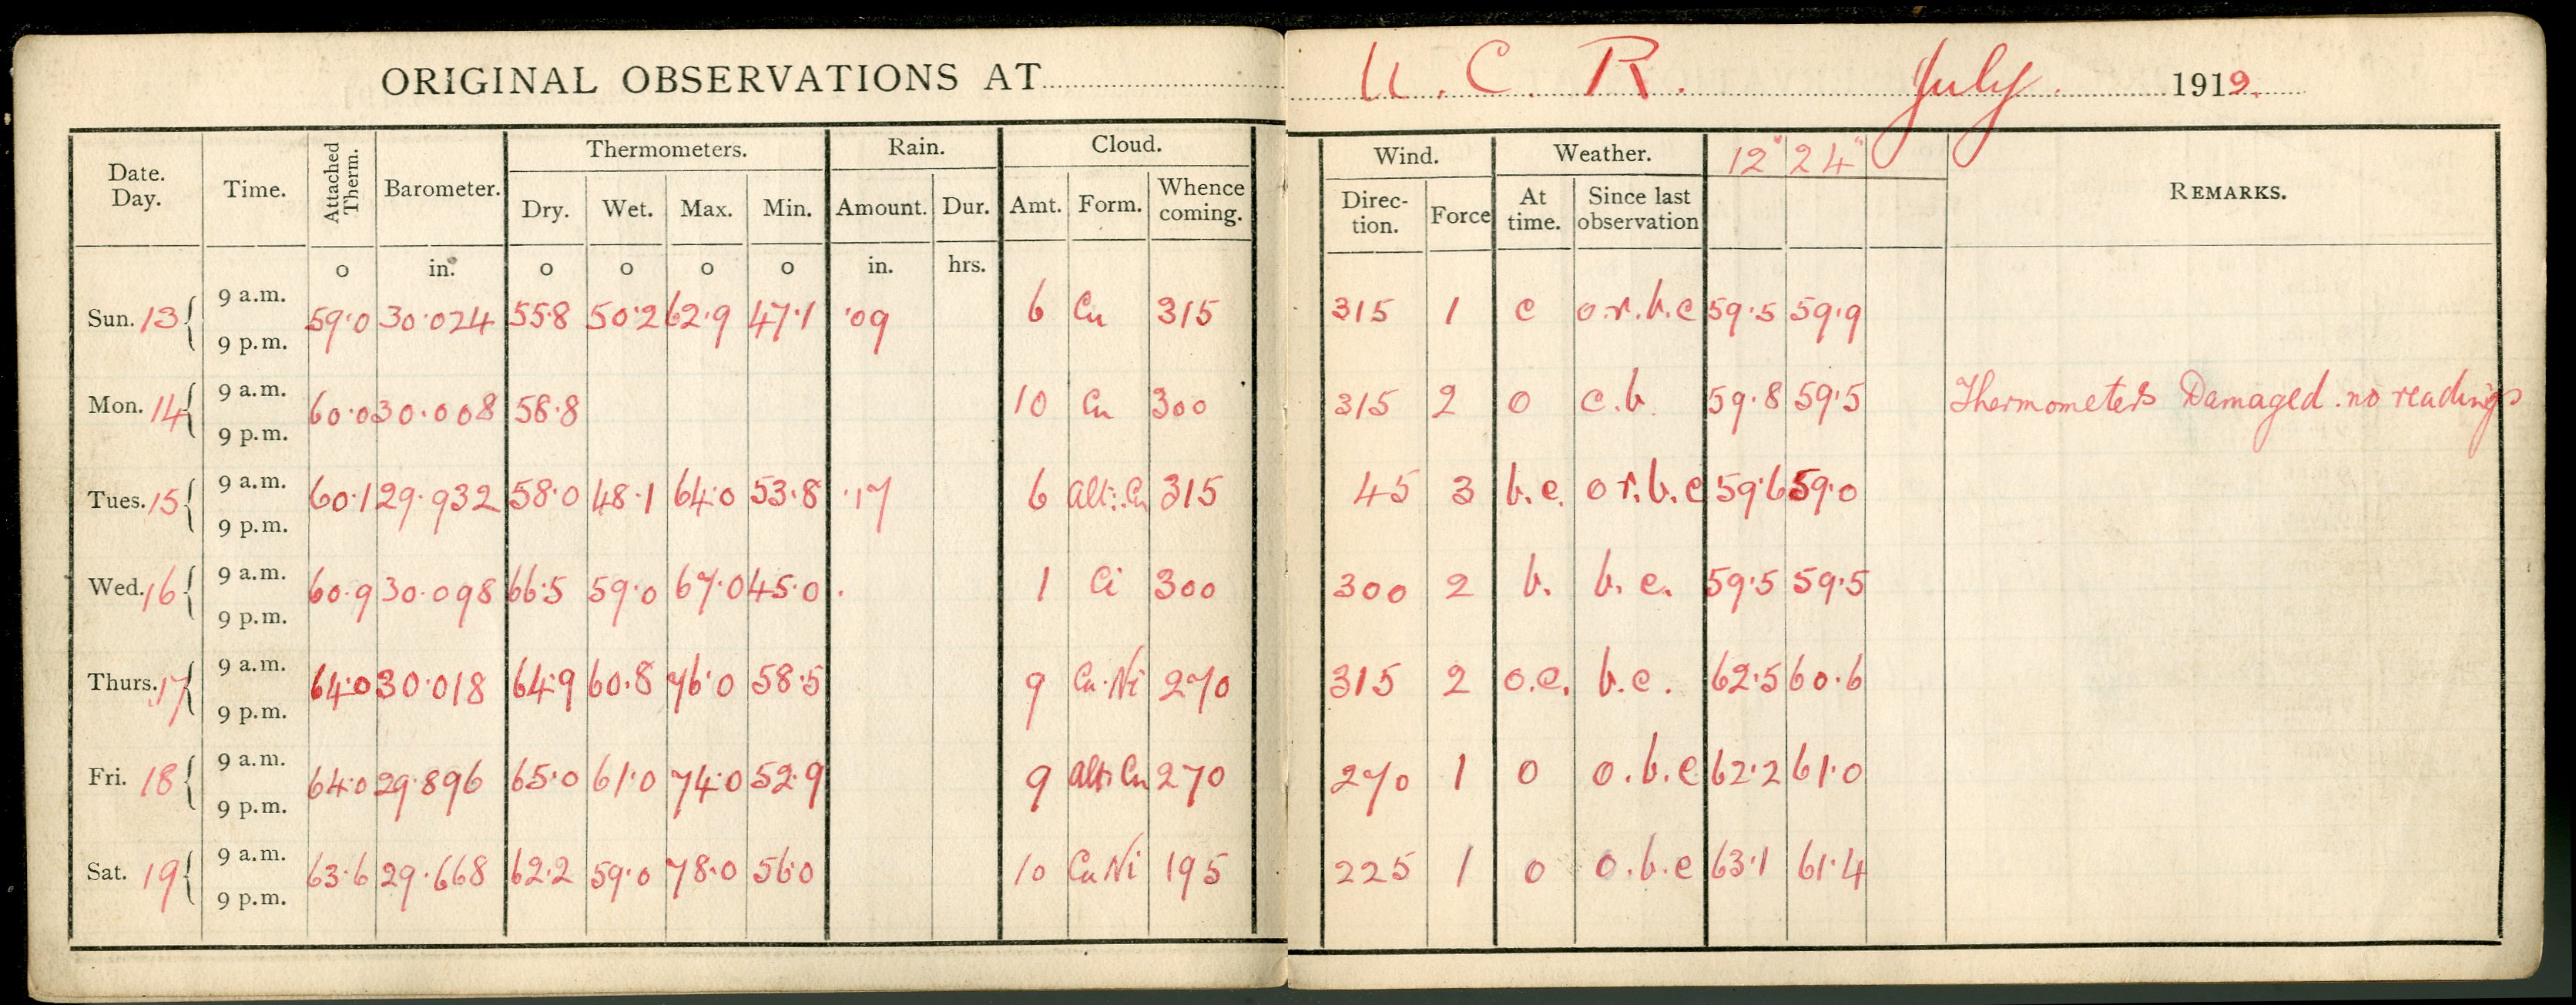 ORIGINAL OBSERVATIONS AT U. C. R. July. 1919.
Date. Day. Time. Attached Therm. Barometer. Thermometers. Rain. Cloud. Wind. Weather. 12" 24" REMARKS.
Dry. Wet. Max. Min. Amount. Dur. Amt. Form. Whence coming. Direc-tion. Force At time. Since last observation
o in. o o o o in. hrs.
Sun. 13 { 9 a.m. 9 p.m. 59·0 30·024 55·8 50·2 62·9 47·1 ·09 6 Cu 315 315 1 c o.r.b.c 59·5 59·9
Mon. 14 { 9 a.m. 9 p.m. 60·0 30·008 58·8 10 Cu 300 315 2 o c.b 59·8 59·5 Thermometers Damaged. no readings
Tues. 15 { 9 a.m. 9 p.m. 60·1 29·932 58·0 48·1 64·0 53·8 ·17 6 Alt:.Cu 315 45 3 b.c. o r.b.c 59·6 59·0
Wed. 16 { 9 a.m. 9 p.m. 60·9 30·098 66·5 59·0 67·0 45·0 . 1 Ci 300 300 2 b. b. c. 59·5 59·5
Thurs. 17 { 9 a.m. 9 p.m. 64·0 30·018 64·9 60·8 76·0 58·5 9 Cu·Ni 270 315 2 o.c. b.c. 62·5 60·6
Fri. 18 { 9 a.m. 9 p.m. 64·0 29·896 65·0 61·0 74·0 52·9 9 Alt: Cu 270 270 1 o o.b.c 62·2 61·0
Sat. 19 { 9 a.m. 9 p.m. 63·6 29·668 62·2 59·0 78·0 56·0 10 Cu Ni 195 225 1 o o.b.c 63·1 61·4